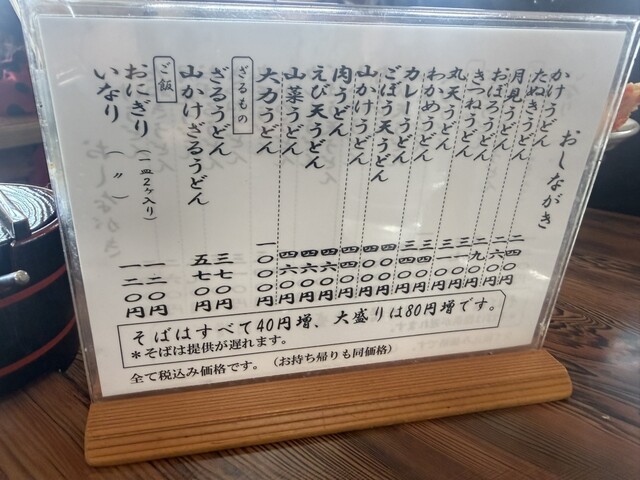 おしながき
かけうどん 二四〇円
たぬきうどん 二六〇円
月見うどん 二九〇円
おぼろうどん 三一〇円
きつねうどん 三一〇円
丸天うどん 三四〇円
わかめうどん 三四〇円
カレーうどん 四〇〇円
ごぼう天うどん 四〇〇円
山かけうどん 四四〇円
肉うどん 四六〇円
えび天うどん 四六〇円
山菜うどん 四六〇円
大力うどん 一〇〇〇円
ざるもの
ざるうどん 三七〇円
山かけざるうどん 五七〇円
ご飯
おにぎり（一皿２ヶ入り） 一二〇円
いなり（ 〃 ） 一二〇円
そばはすべて40円増、大盛りは80円増です。
＊そばは提供が遅れます。
全て税込み価格です。（お持ち帰りも同価格）